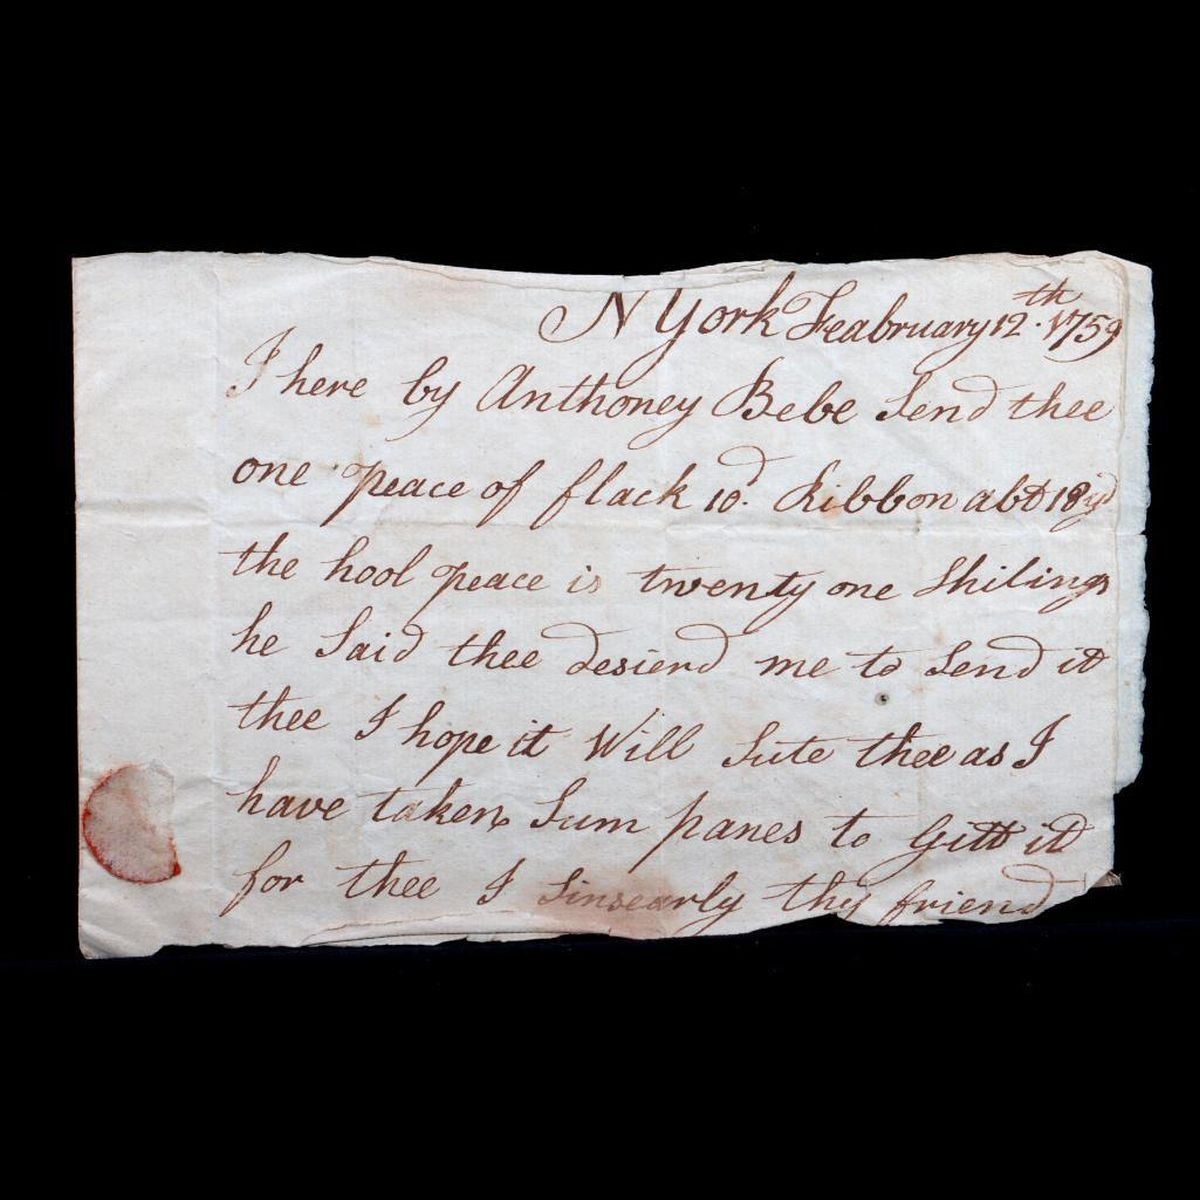 N York Feabruary 12th. 1759
I here by Anthoney Bebe Send thee
one peace of flack 10d. Ribbon abt 18yd
the hool peace is twenty one Shilings
he Said thee desierd me to Send it
thee I hope it Will Sute thee as I
have taken Sum panes to Gitt it
for thee I Sinsearly thy friend